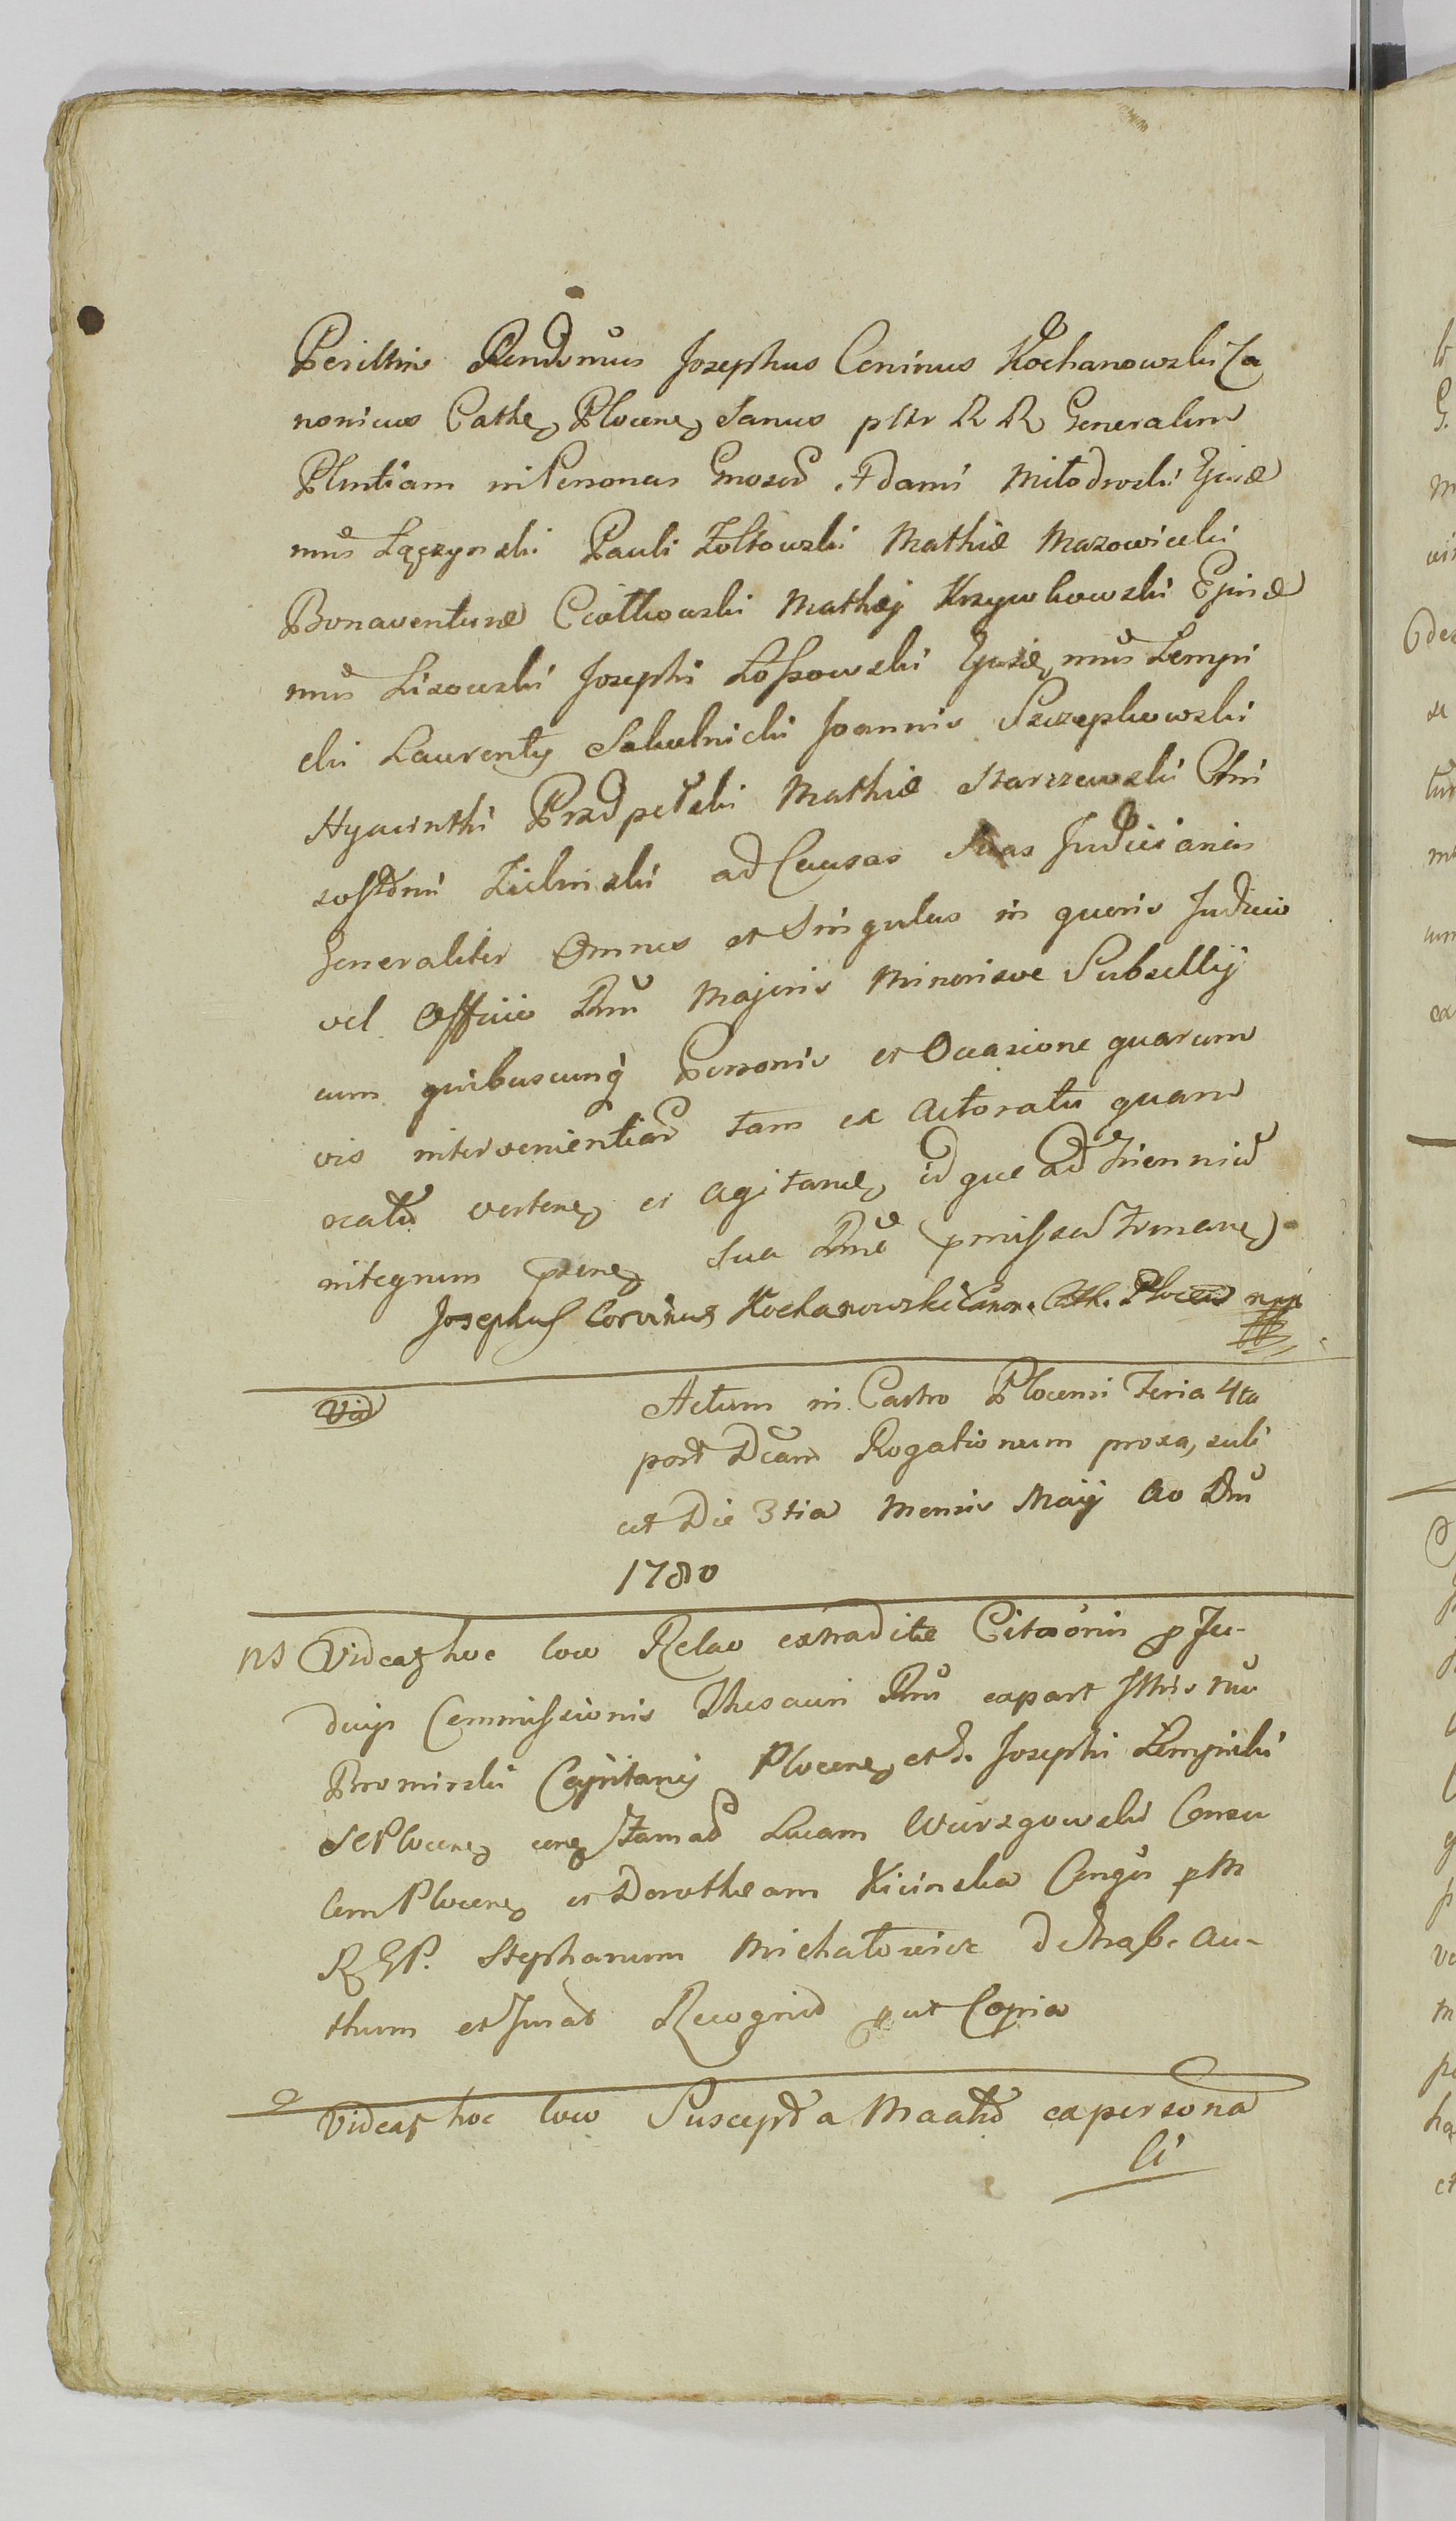 Perilltris Rendsmus Josephus Corvinus Kochanowski Ca
nonicus Cathe Plocens Sanus pltr R R Generalem
Plntiam in Personas Gnosrd Adami Miłodroski Ejusd
mus Łączynski Pauli Zołtowski Mathiæ Mazowiecki
Bonaventuræ Ciołkowski Mathej Krzywkowski Ejusd
mus Lisowski Josephi Lossowski Ejusd mus Lempi
cki Laurentij Sokolnicki Joannis Szczepkowski
Hyacinthi Przedpełski Mathiæ Starczewski
Zielinski ad Causas Suas Judiciarias
Generaliter Omnes et Singulas in quovis Judicio
vel Officio Rni Majoris Minorisve Subsellij
cum quibuscunq Personis et Occasione quarum
vis intervenientiad tam ex Actoratu quam
reatu verten et agitand idque ad Triennium
integrum prsens Sua Dnte prmissa firmare
Josephus Corvinus Kochanowski Canon. Cath. Plocens mpp
Vid
Actum in Castro Plocensi Feria 4ta
post Dcam Rogationum proxa, sub
ut Die 3tia Mensis Maij Ao Dni
1780
NS Videat hoc loco Relao extraditæ Citaoris p Ju-
dicy Commissionis Thesauri Rni ex part Illtris
Bromirski Capitanij Plocens et G. Josephi Lempicki
Plocens Lucam Wurzgowski Consu
lem Plocens et Dorotheam Kicinska Congs p M
R G P. Stephanum Michałowicz detrass. Au-
thum et Jurat Recognid put Copia
Videat hoc loco Suscept a Maatd ex persona
li